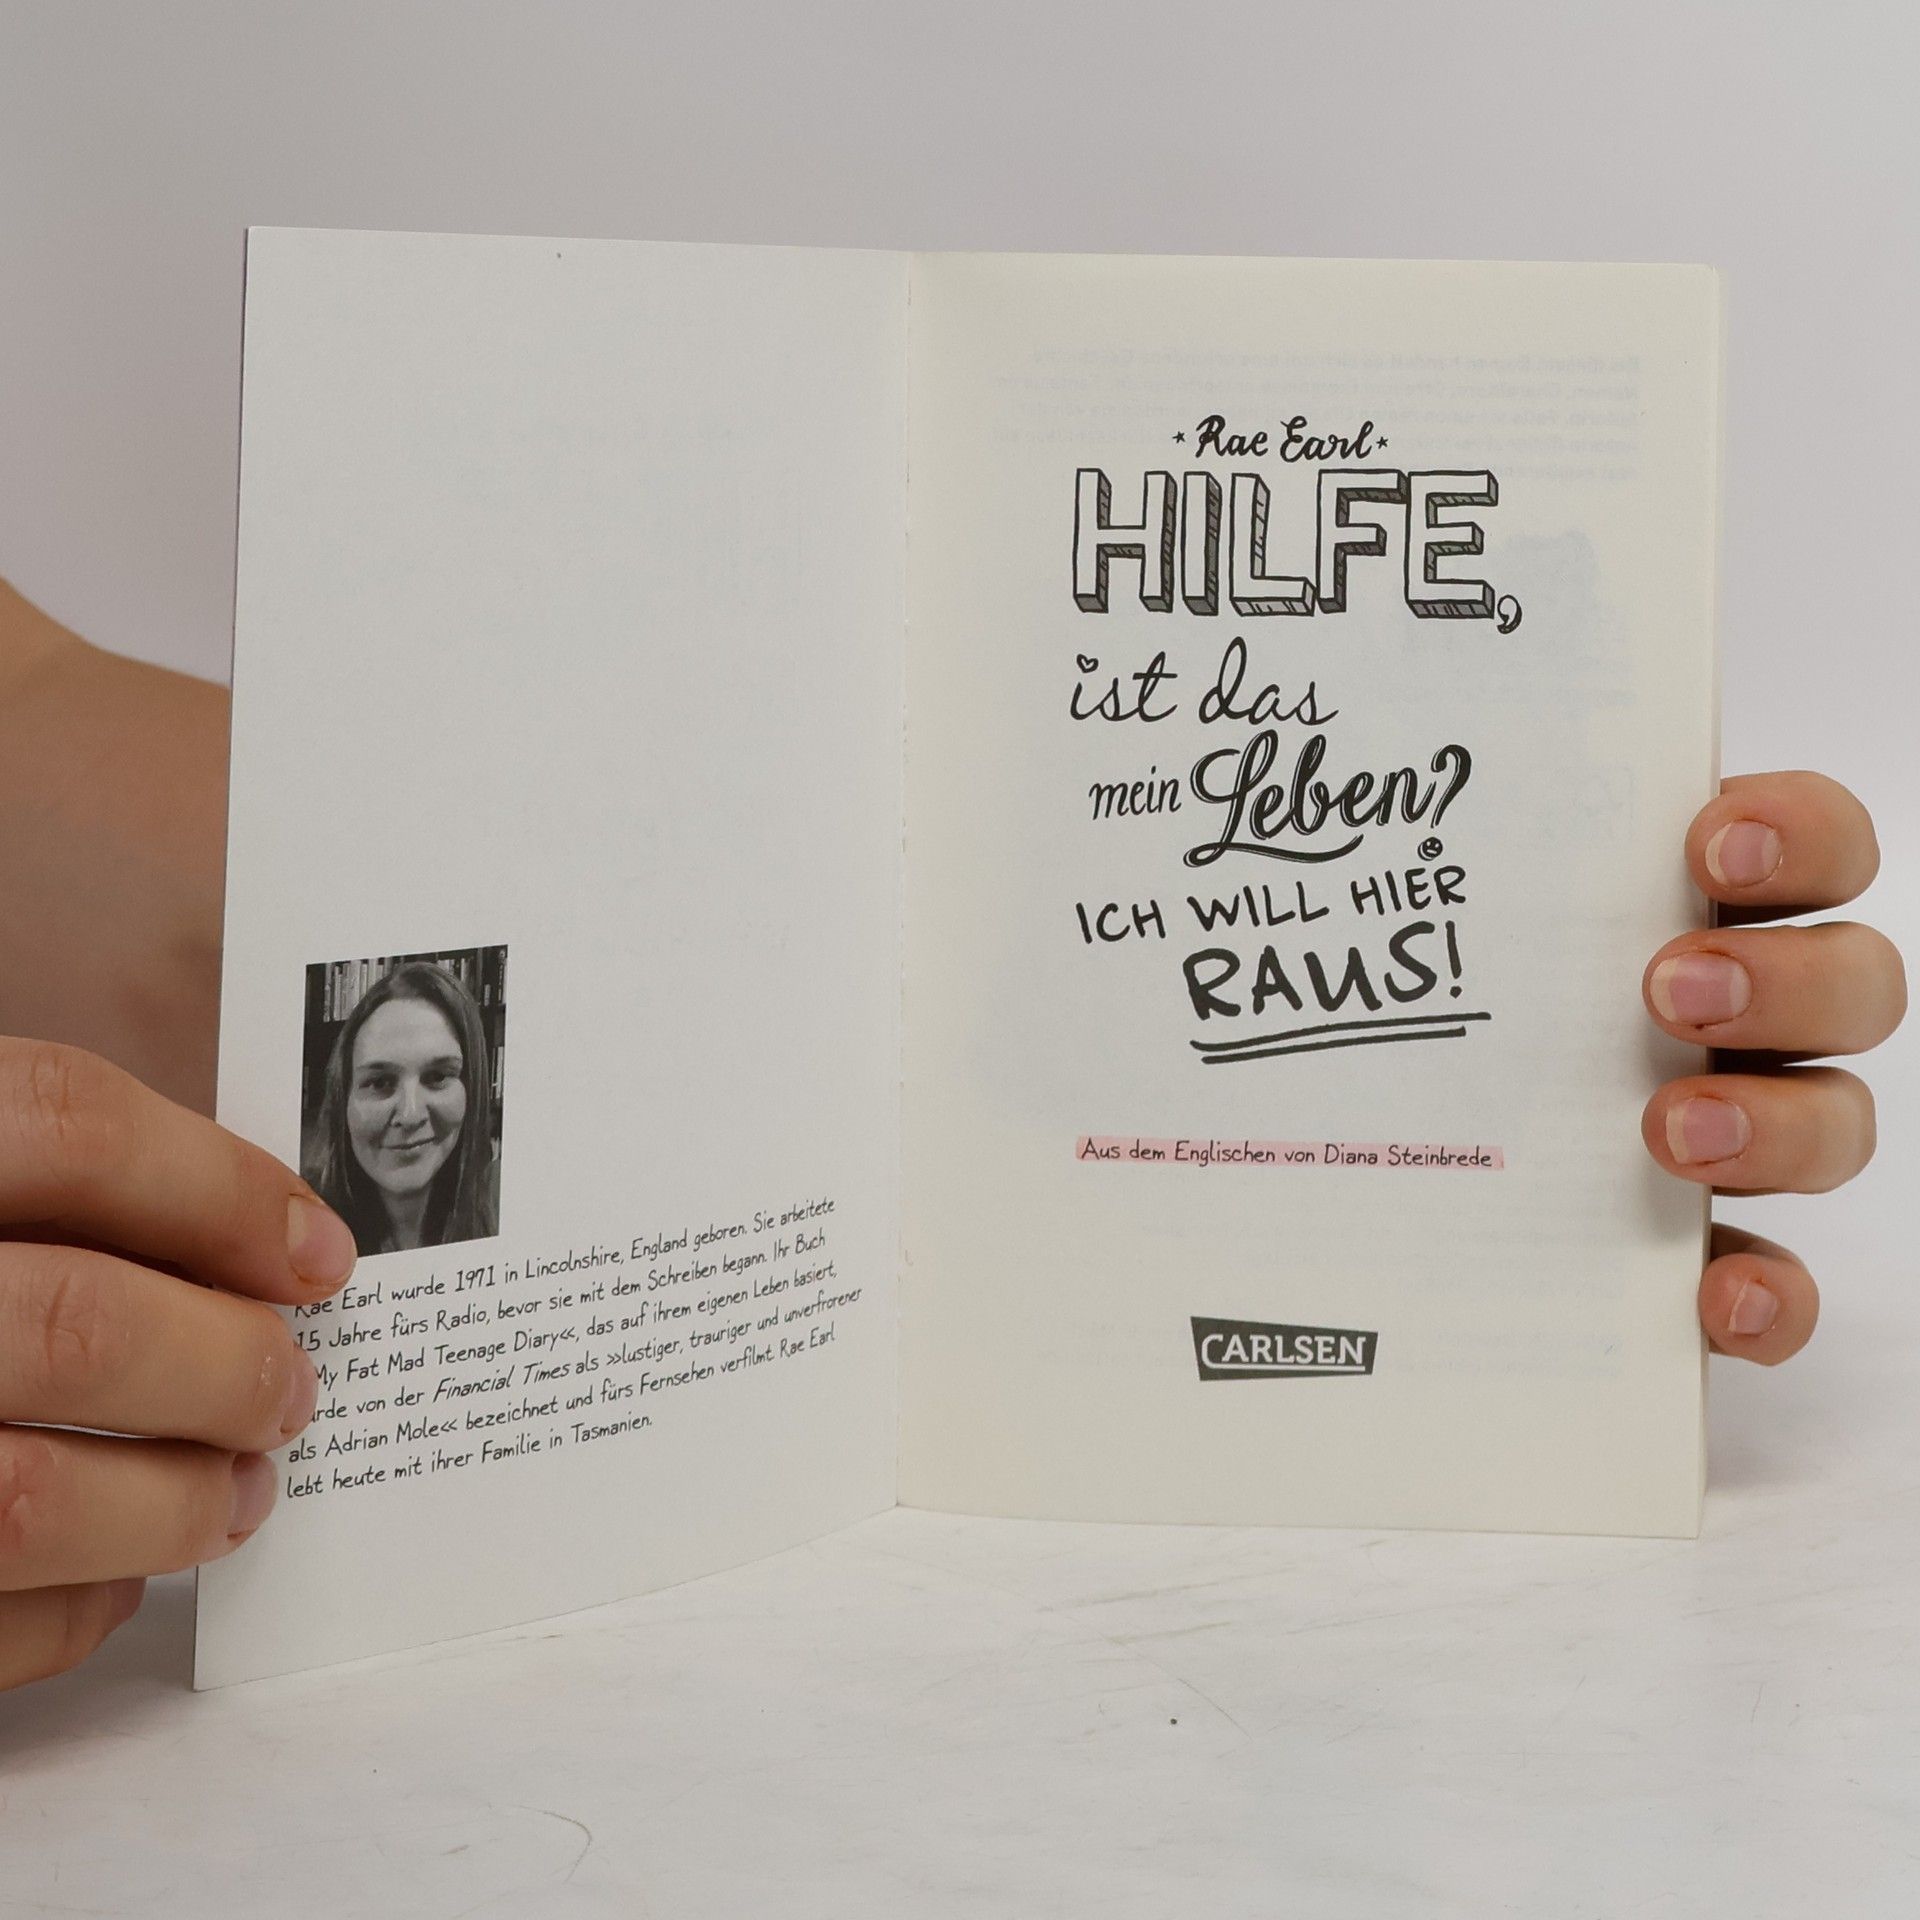 Rae Earl wurde 1971 in Lincolnshire, England geboren. Sie arbeitete
15 Jahre fürs Radio, bevor sie mit dem Schreiben begann. Ihr Buch
My Fat Mad Teenage Diary<<, das auf ihrem eigenen Leben basiert,
von der Financial Times als >>lustiger, trauriger und unverfrorener
als Adrian Mole<< bezeichnet und fürs Fernsehen verfilmt. Rae Earl
lebt heute mit ihrer Familie in Tasmanien.
Rae Earl
HILFE,
ist das
mein Leben?
ICH WILL HIER
RAUS!
Aus dem Englischen von Diana Steinbrede
CARLSEN